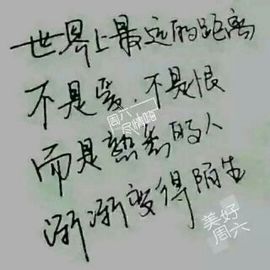 世界上最远的距离
不是爱 不是恨
周六
尽情嗨
而是熟悉的人
渐渐变得陌生
美好
周六